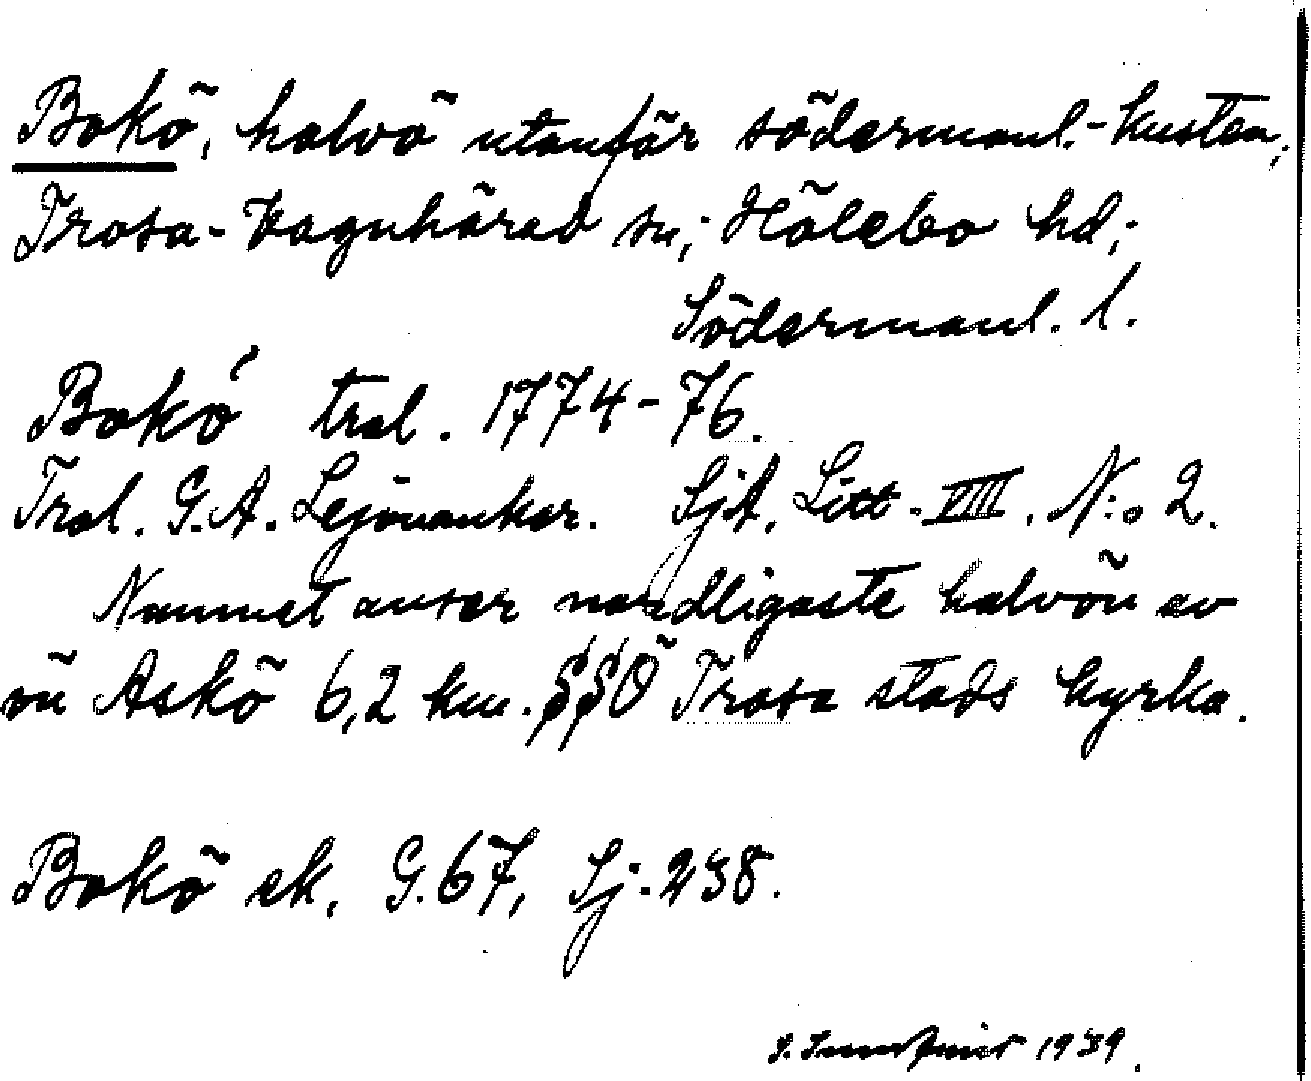 Bokö, halvö utanför södermanl.-kusten,
Trosa-Vagnhärad sn; Hölebo hd;
Södermanl. l.
Bokö trol. 1774-76.
Trol. G. A. Lejonankar. SjA, Litt. VIII. N:o 2.
Namnet avser nordligaste halvön av
ön Askö 6,2 km. SSO Trosa stads kyrka.
Bokö ek. G. 67, Sj. 238.
1939.